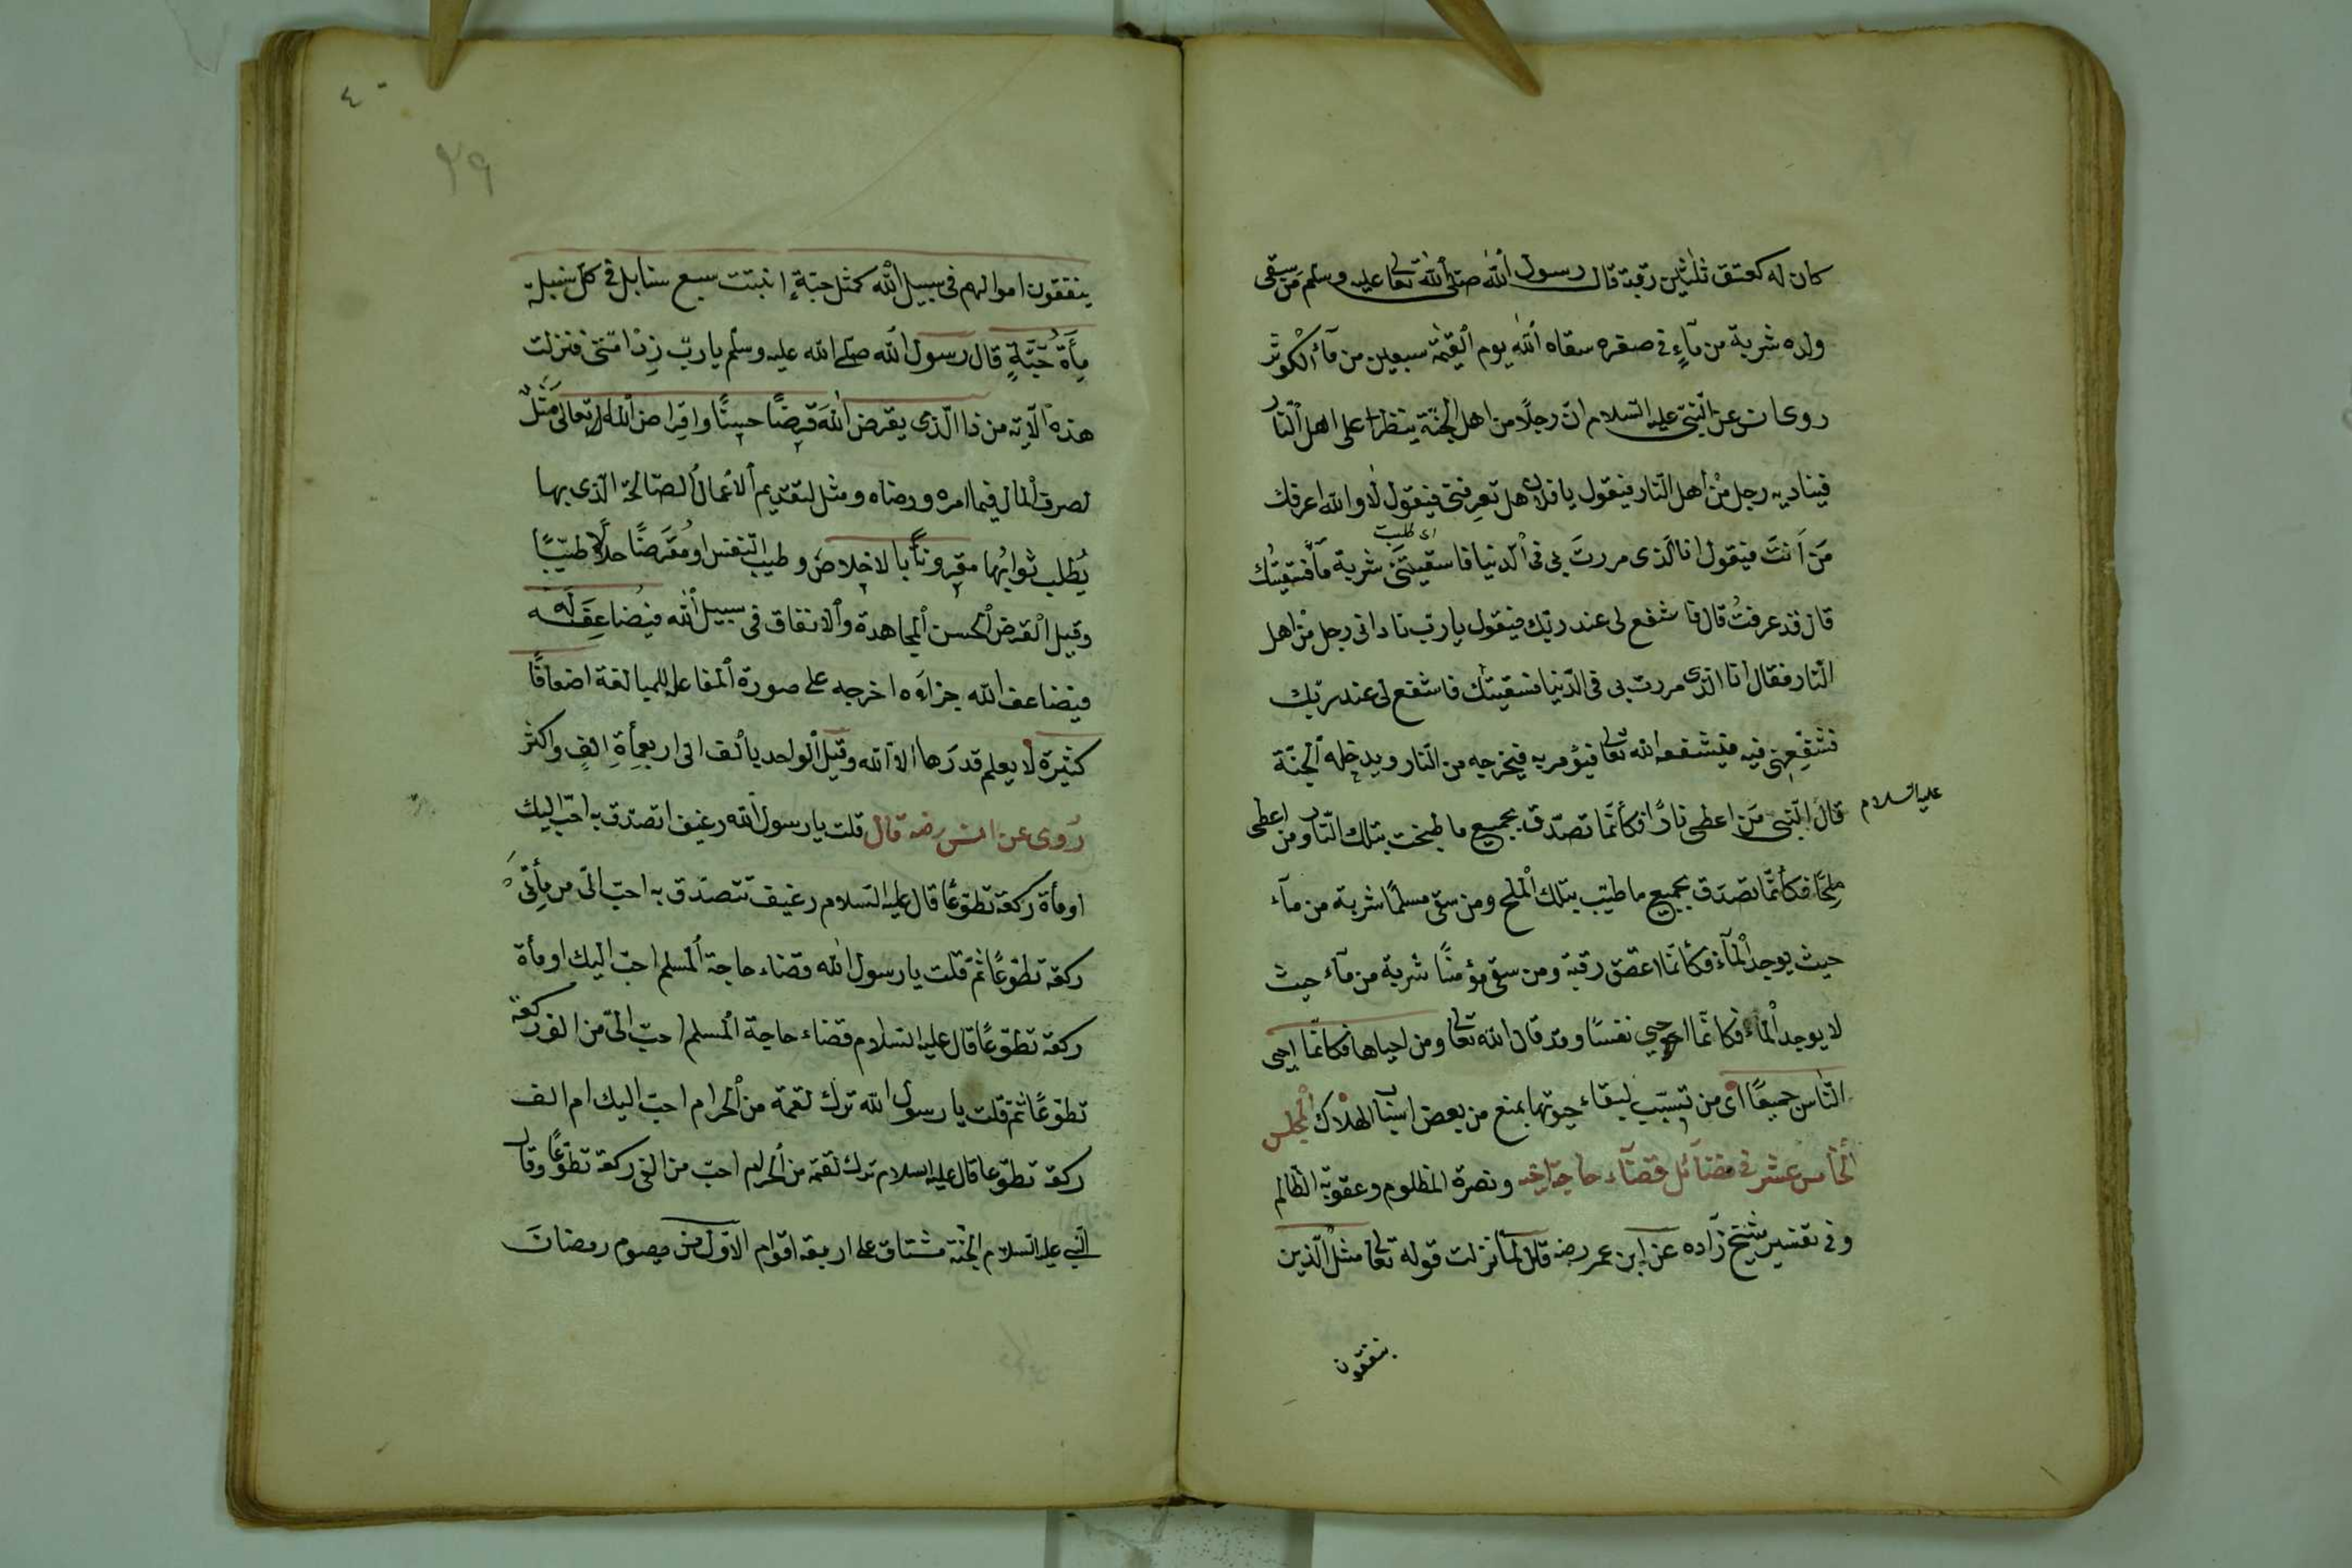 كان له كعتق ثلثين رقبة قال رسول الله صلى الله تعالى عليه وسلم من سقى
ولده شربة من مآءٍ فى صغره سقاه الله يوم القيمة سبعين من مآء الكوثر
روى عن النبى عليه السلام انّ رجلًا من اهل الجنّة ينظر على اهل النّار
فيناديه رجل من اهل النّار فيقول يا فلان هل تعرفنى فيقول لا والله اعرفك
اى طلبت
مَن اَنتَ فيقول انا الّذى مررتَ بى فى الدّنيا فاستقيتَنى شربة مآء فسقيتُك
قال قد عرفتُ قال فاشفع لى عند ربّك فيقول يا ربّ نادانى رجل من اهل
النّار فقال انا الّذى مررت بى فى الدّنيا فسقيتك فاشفع لى عند ربّك
فشفّعنى فيه فيشفعه الله تعالى فيؤمر به فيخرجه من النّار ويدخله الجنّة
عليه السلام
قال النّبى مَن اعطى نارًا فكأنّما تصدّق بجميع ما طبخت بتلك النّار ومن اعطى
مِلحًا فكأنّما تصدّق بجميع ما طيّب بتلك الملح ومن سقى مسلمًا شربة من مآء
حيث يوجد المآء فكأنّما اعتق رقبة ومن سقى مؤمنًا شربة من مآء حيث
لا يوجد المآء فكانّما احيى نفسًا وقد قال الله تعالى ومن احياها فكانّما احيى
النّاس جميعًا اى من تسبّب لبقاء حيوتها بمنع من بعض اسباب الهلاك المجلس
الخامس عشر فى فضآئل قضآء حاجة اخيه ونصرة المظلوم وعقوبة الظالم
وفى تفسير شيخ زاده عن ابن عمر رضه قال لمّا نزلت قوله تعالى مثل الّذين
ينفقون
٤٠
٣٩
ينفقون اموالهم فى سبيل الله كمثل حبّةٍ انبتت سبع سنابل فى كلّ سنبلة
مِأَةُ حَبّةٍ قال رسول الله صلى الله عليه وسلم يا ربّ زِد امّتى فنزلت
هذه الآية من ذا الّذى يقرض اللهَ قرضًا حسنًا واقراض الله تعالى مَثَلٌ
لصرف المال فيما امره ورضاه ومثل لتقديم الأعمال الصّالحة الّذى بها
يُطلب ثوابُها مقرونًا بالاخلاص وطيب النّفس او مُقرَضًا حلالًا طيّبًا
وقيل القرض الحسن المجاهدة والانفاق فى سبيل الله فيُضاعِفَه له
فيضاعف الله جزاءَه اخرجه على صورة المفاعلة للمبالغة اضعافًا
كثيرة لا يعلم قدرَها الّا الله وقيل الواحد بالف الى اربعمأةِ الفٍ واكثر
رُوى عن انس رضه قال قلت يا رسول الله رغيف اتصدّق به احبّ اليك
او مأة ركعة تطوّعًا قال عليه السّلام رغيف تتصدّق به احبّ الىّ من مِأتى
ركعة تطوّعًا ثمّ قلت يا رسول الله قضاء حاجة المسلم احبّ اليك او مأة
ركعة تطوّعًا قال عليه السّلام قضاء حاجة المسلم احبّ الىّ من الف ركعة
تطوّعًا ثمّ قلت يا رسول الله ترك لقمة من الحرام احبّ اليك ام الف
ركعة تطوّعا قال عليه السلام ترك لقمة من الحرام احبّ من الفى ركعة تطوّعًا وقال
النّبى عليه السلام الجنّة مشتاق على اربعة اقوام الاوّل من يصوم رمضانَ